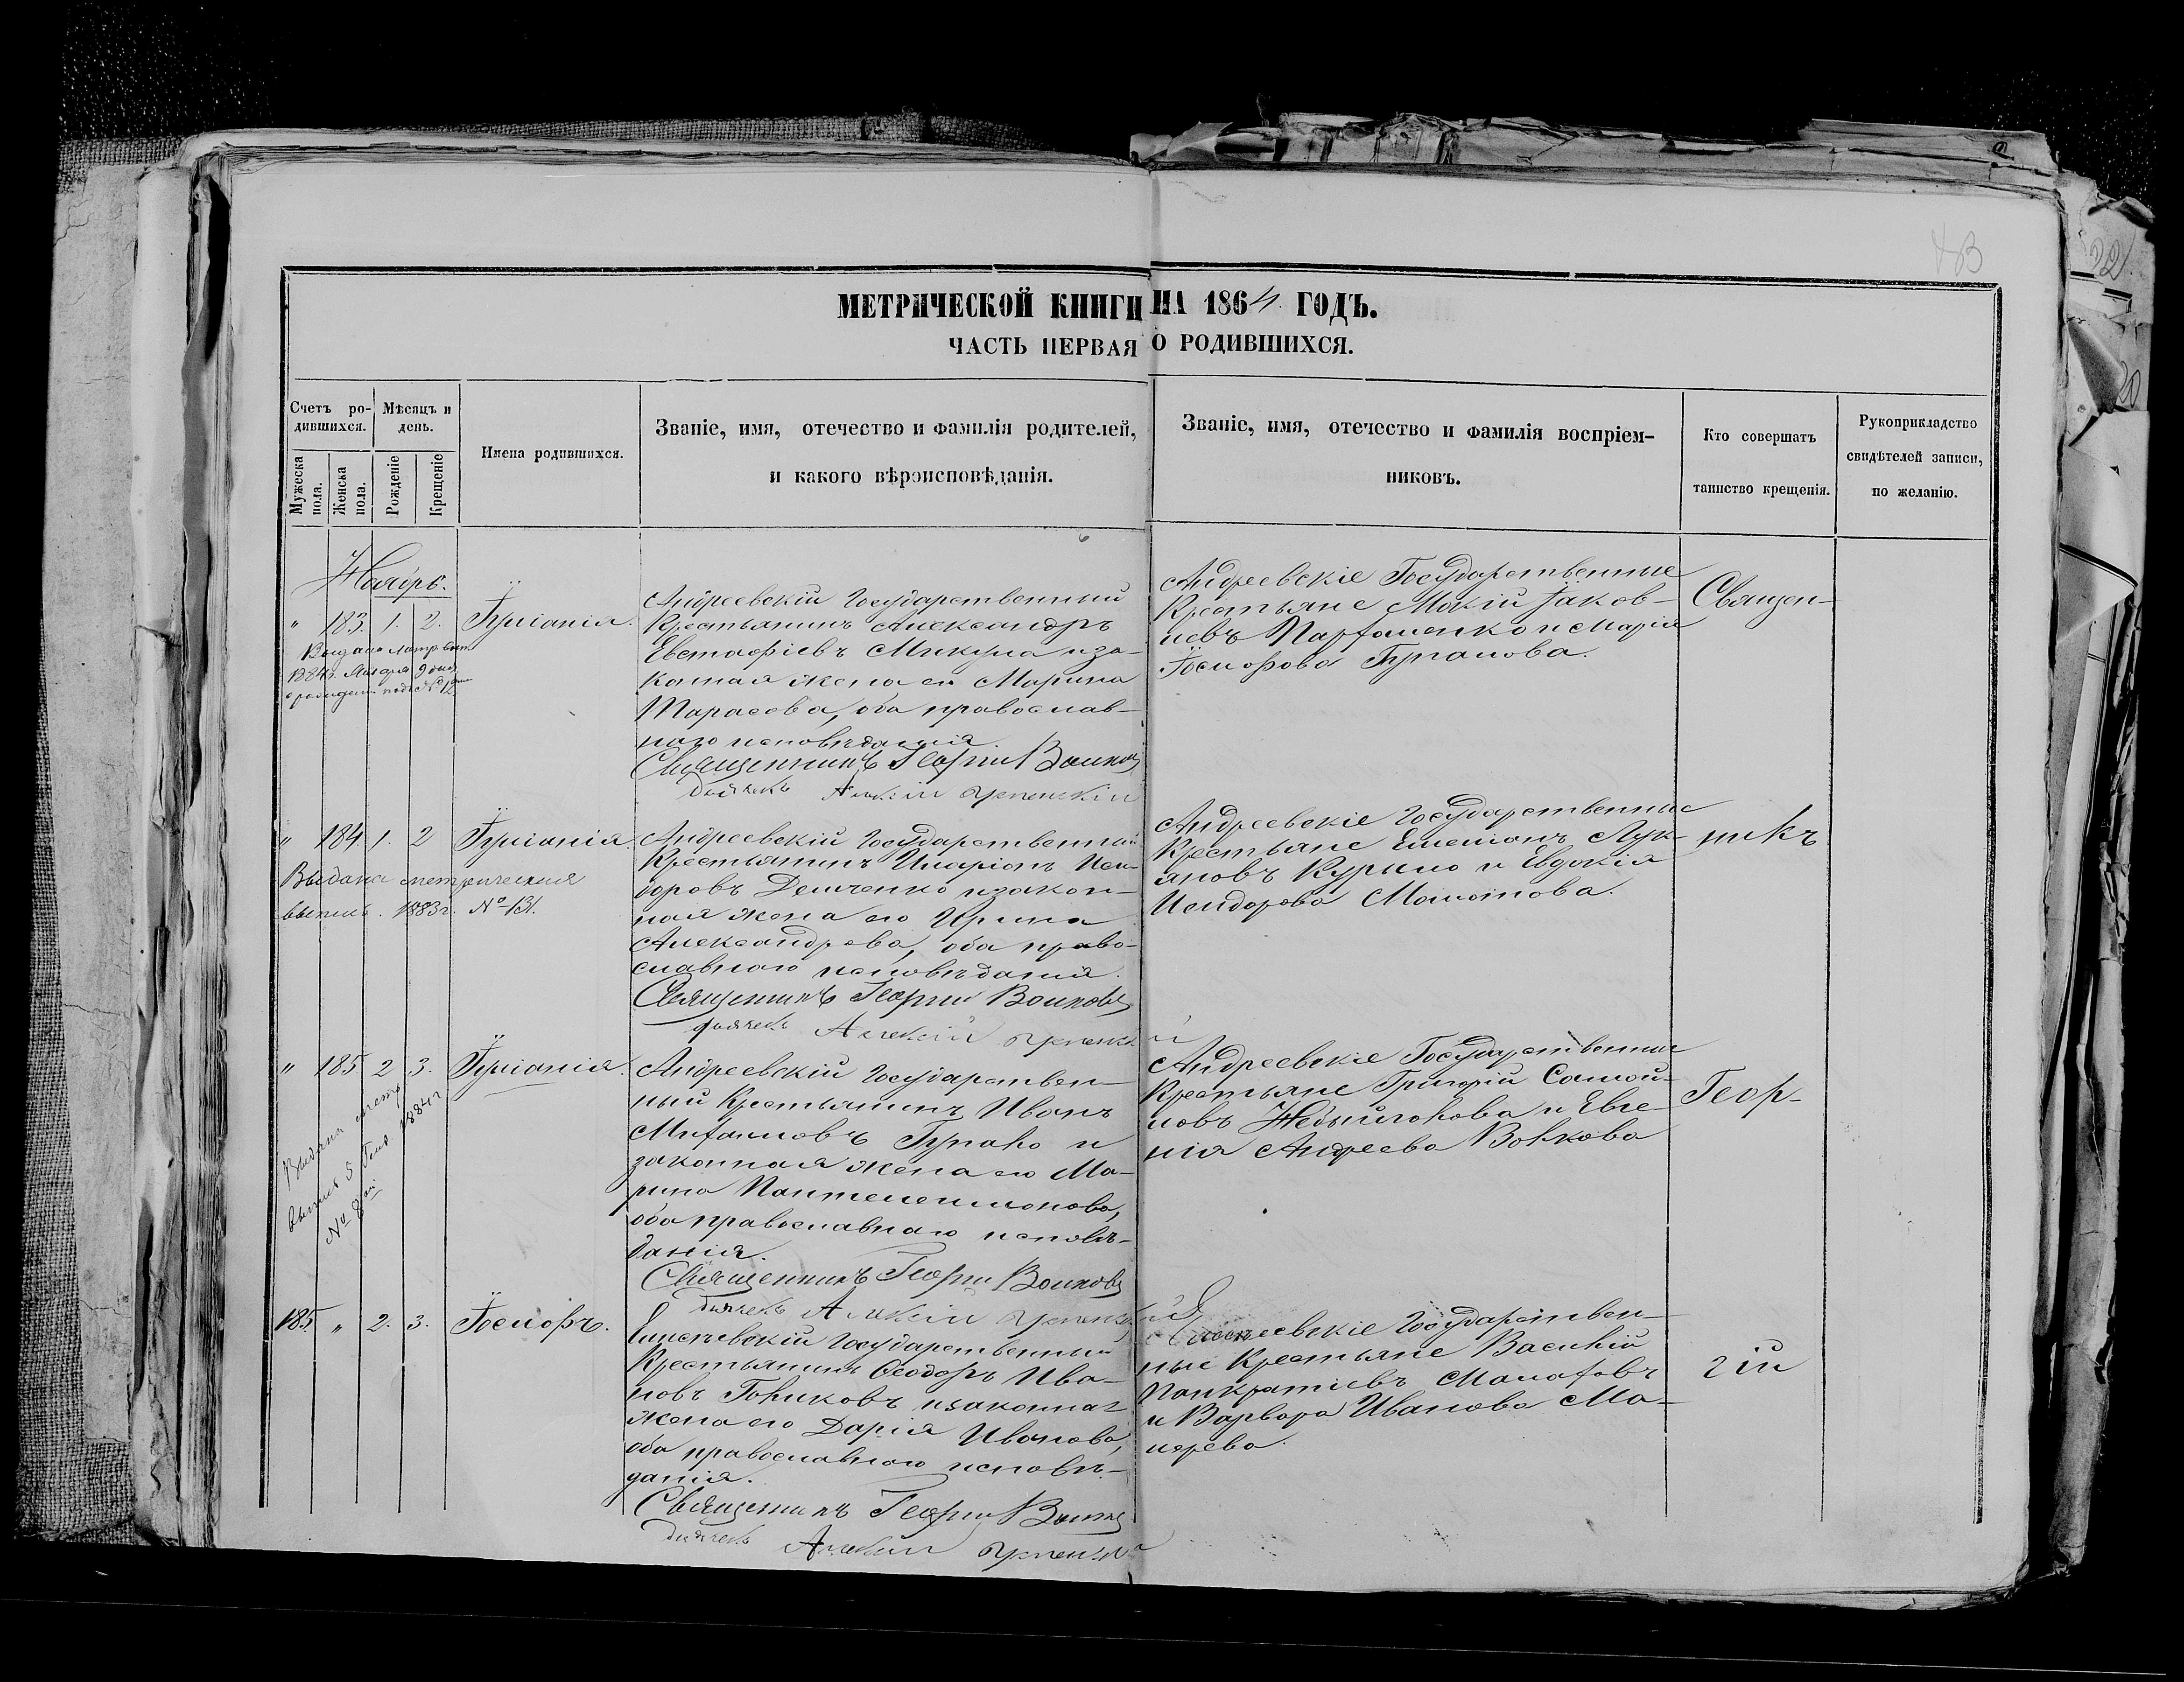 МЕТРИЧЕСКОЙ КНИГИ НА 1864 ГОДЪ.
ЧАСТЬ ПЕРВАЯ О РОДИВШИХСЯ.
Счетъ ро-
дившихся.
Мѣсяцъ и
день.
Мужеска
пола.
Женска
пола.
Рожденіе
Крещеніе
Имена родившихся.
Званіе, имя, отечество и фамилія родителей,
и какого вѣроисповѣданія.
Званіе, имя, отечество и фамилія воспріем-
никовъ.
Кто совершатъ
таинство крещенія.
Рукоприкладство
свидѣтелей записи,
по желанію.
Ноябрь.
" 183. 1. 2. Іуліанія.
Андреевскій Государственный
Крестьянинъ Александръ
Евстафіевъ Микула и за-
конная жена его Марина
Тарасова, оба православ-
наго исповѣданія.
Священникъ Георгій Волковъ
дьячекъ Алексій
Андреевскіе Государственные
Крестьяне Мокій Іаков-
левъ Парфоменко и Марія
Іосифова
Священ-
" 184 1. 2 Іуліанія.
Выдана метрическая
выпись. 1883 г. № 131.
Андреевскій Государственный
Крестьянинъ Иларіонъ Иси-
доровъ Демченко и закон-
ная жена его Ирина
Александрова, оба право-
славнаго исповѣданія.
Священникъ Георгій Волковъ
дьячекъ Алексій
Андреевскіе Государственные
Крестьяне Емеліанъ Лук-
яновъ Курило и Евдокія
Исидорова
никъ
" 185 2 3. Іуліанія.
Андреевскій Государствен-
ный Крестьянинъ Иванъ
Михаиловъ и
законная жена его Ма-
рина Пантелеимонова,
оба православнаго исповѣ-
данія.
Священникъ Георгій Волковъ
дьячекъ Алексій
Андреевскіе Государственные
Крестьяне Григорій Самой-
ловъ и Евге-
нія Андреева Волкова
Геор-
185. " 2. 3. Іосифъ.
Елисѣевскій Государственный
Крестьянинъ Ѳеодоръ Ива-
новъ Голиковъ и законная
жена его Дарія Иванова,
оба православнаго исповѣ-
данія.
Священникъ Георгій Волковъ
дьячекъ Алексій
Государствен-
ные Крестьяне Василій
Панкратіевъ Малаховъ
и Варвара Иванова
гій